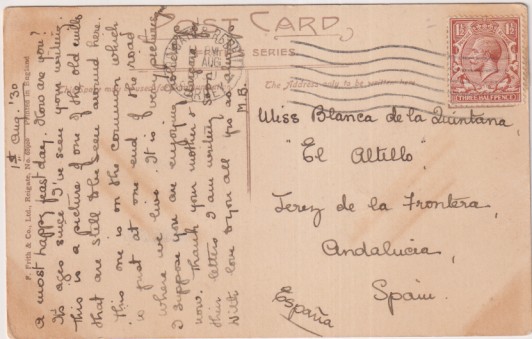 POST CARD
SERIES.
The Address only to be written here
THREE HALFPENCE
AUG
F. Frith & Co., Ltd., Reigate.
Printed in England
1st Aug. '30
A most happy feast day. How are you?
Its ages since I've seen your writing.
This is a picture of one of the old mills
that are still to be seen around here.
This one is on the common which
is just at one end of the road
where we live. It is a very picture
I suppose you are enjoying
now. Thank your mother &
their letters I am writing soon
With love to you all yrs as always
M.B.
Miss Blanca de la Quintana
"El Altillo"
Jerez de la Frontera,
Andalucia,
Spain.
España